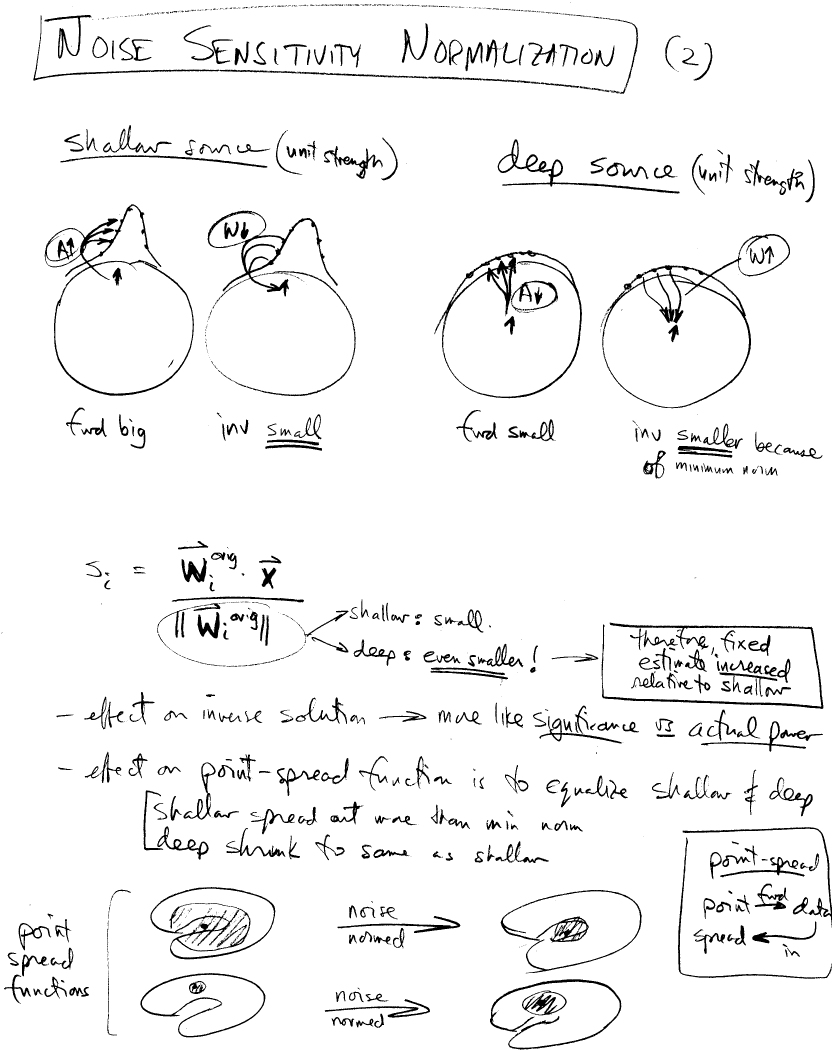 NOISE SENSITIVITY NORMALIZATION (2)
shallow source (unit strength)
deep source (unit strength)
A↑
W↓
A↓
W↑
fwd big
inv small
fwd small
inv smaller because
of minimum norm
s_i = W_i^orig · x
|| W_i^orig ||
shallow: small.
deep: even smaller!
therefore, fixed
estimate increased
relative to shallow
- effect on inverse solution → more like significance vs actual power
- effect on point-spread function is to equalize shallow & deep
shallow spread out more than min norm
deep shrunk to same as shallow
point-spread
point fwd→ data
spread ←
in
point
spread
functions
noise
normed
noise
normed